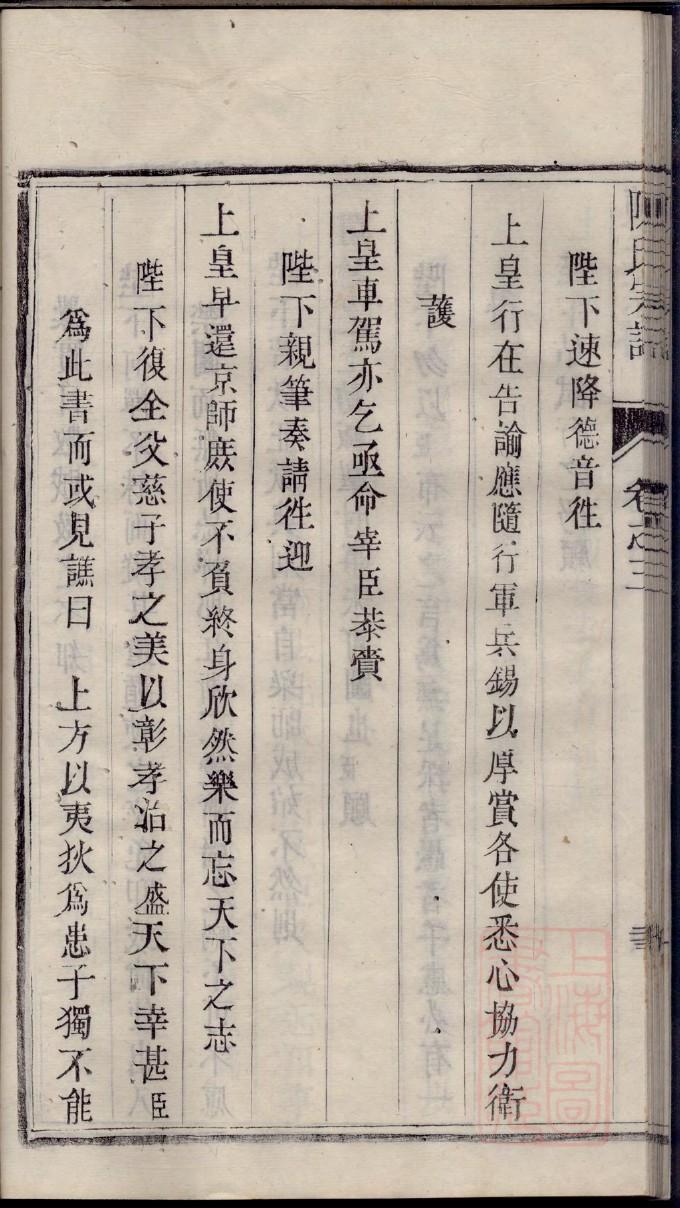 陛下速降德音徃
上皇行在告諭應隨行軍兵錫以厚賞各使悉心協力衛
護
上皇車駕亦乞亟命宰臣恭賫
陛下親筆奏請徃迎
上皇早還京師庶使不負終身欣然樂而忘天下之志
陛下復全父慈子孝之美以彰孝治之盛天下幸甚臣
爲此書而或見譙曰 上方以夷狄爲患子獨不能
卷之三
上海圖